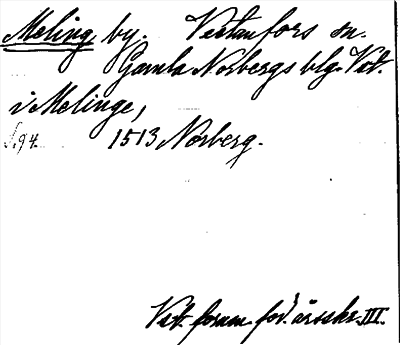 Meling, by. Vestanfors sn.
Gamla Norbergs blg. Vst.
i Melinge,
S. 94. 1513 Norberg.
Vst. fornm. för. årsskr. III.